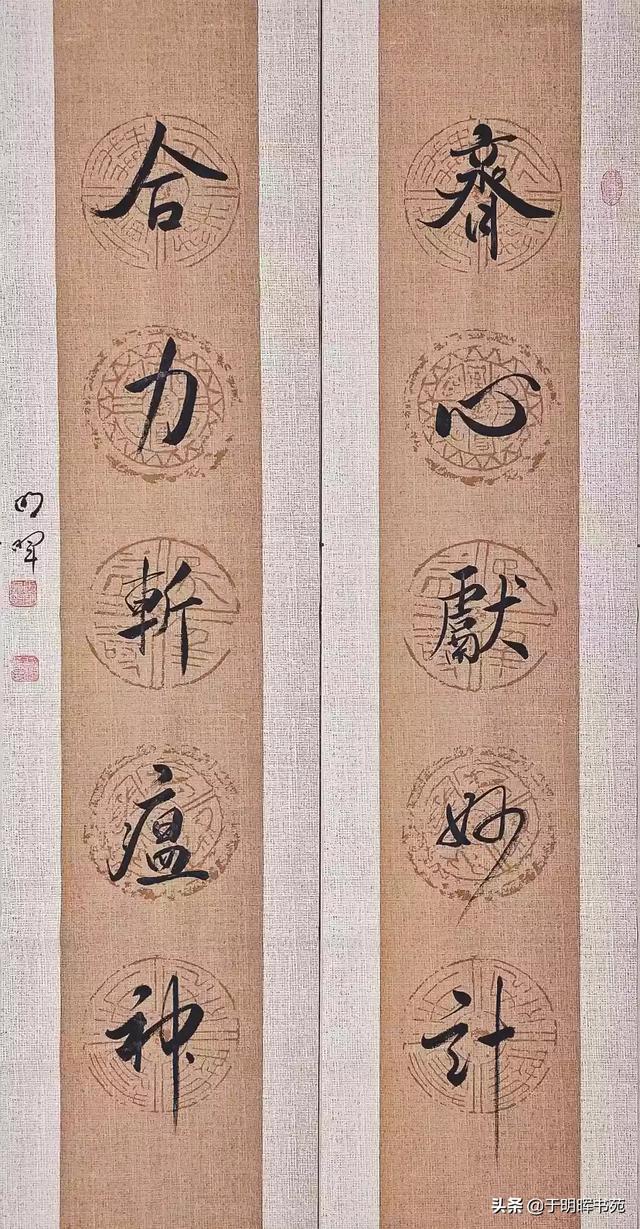 齊心獻妙計
合力斬瘟神
明暉
头条 @于明晖书苑